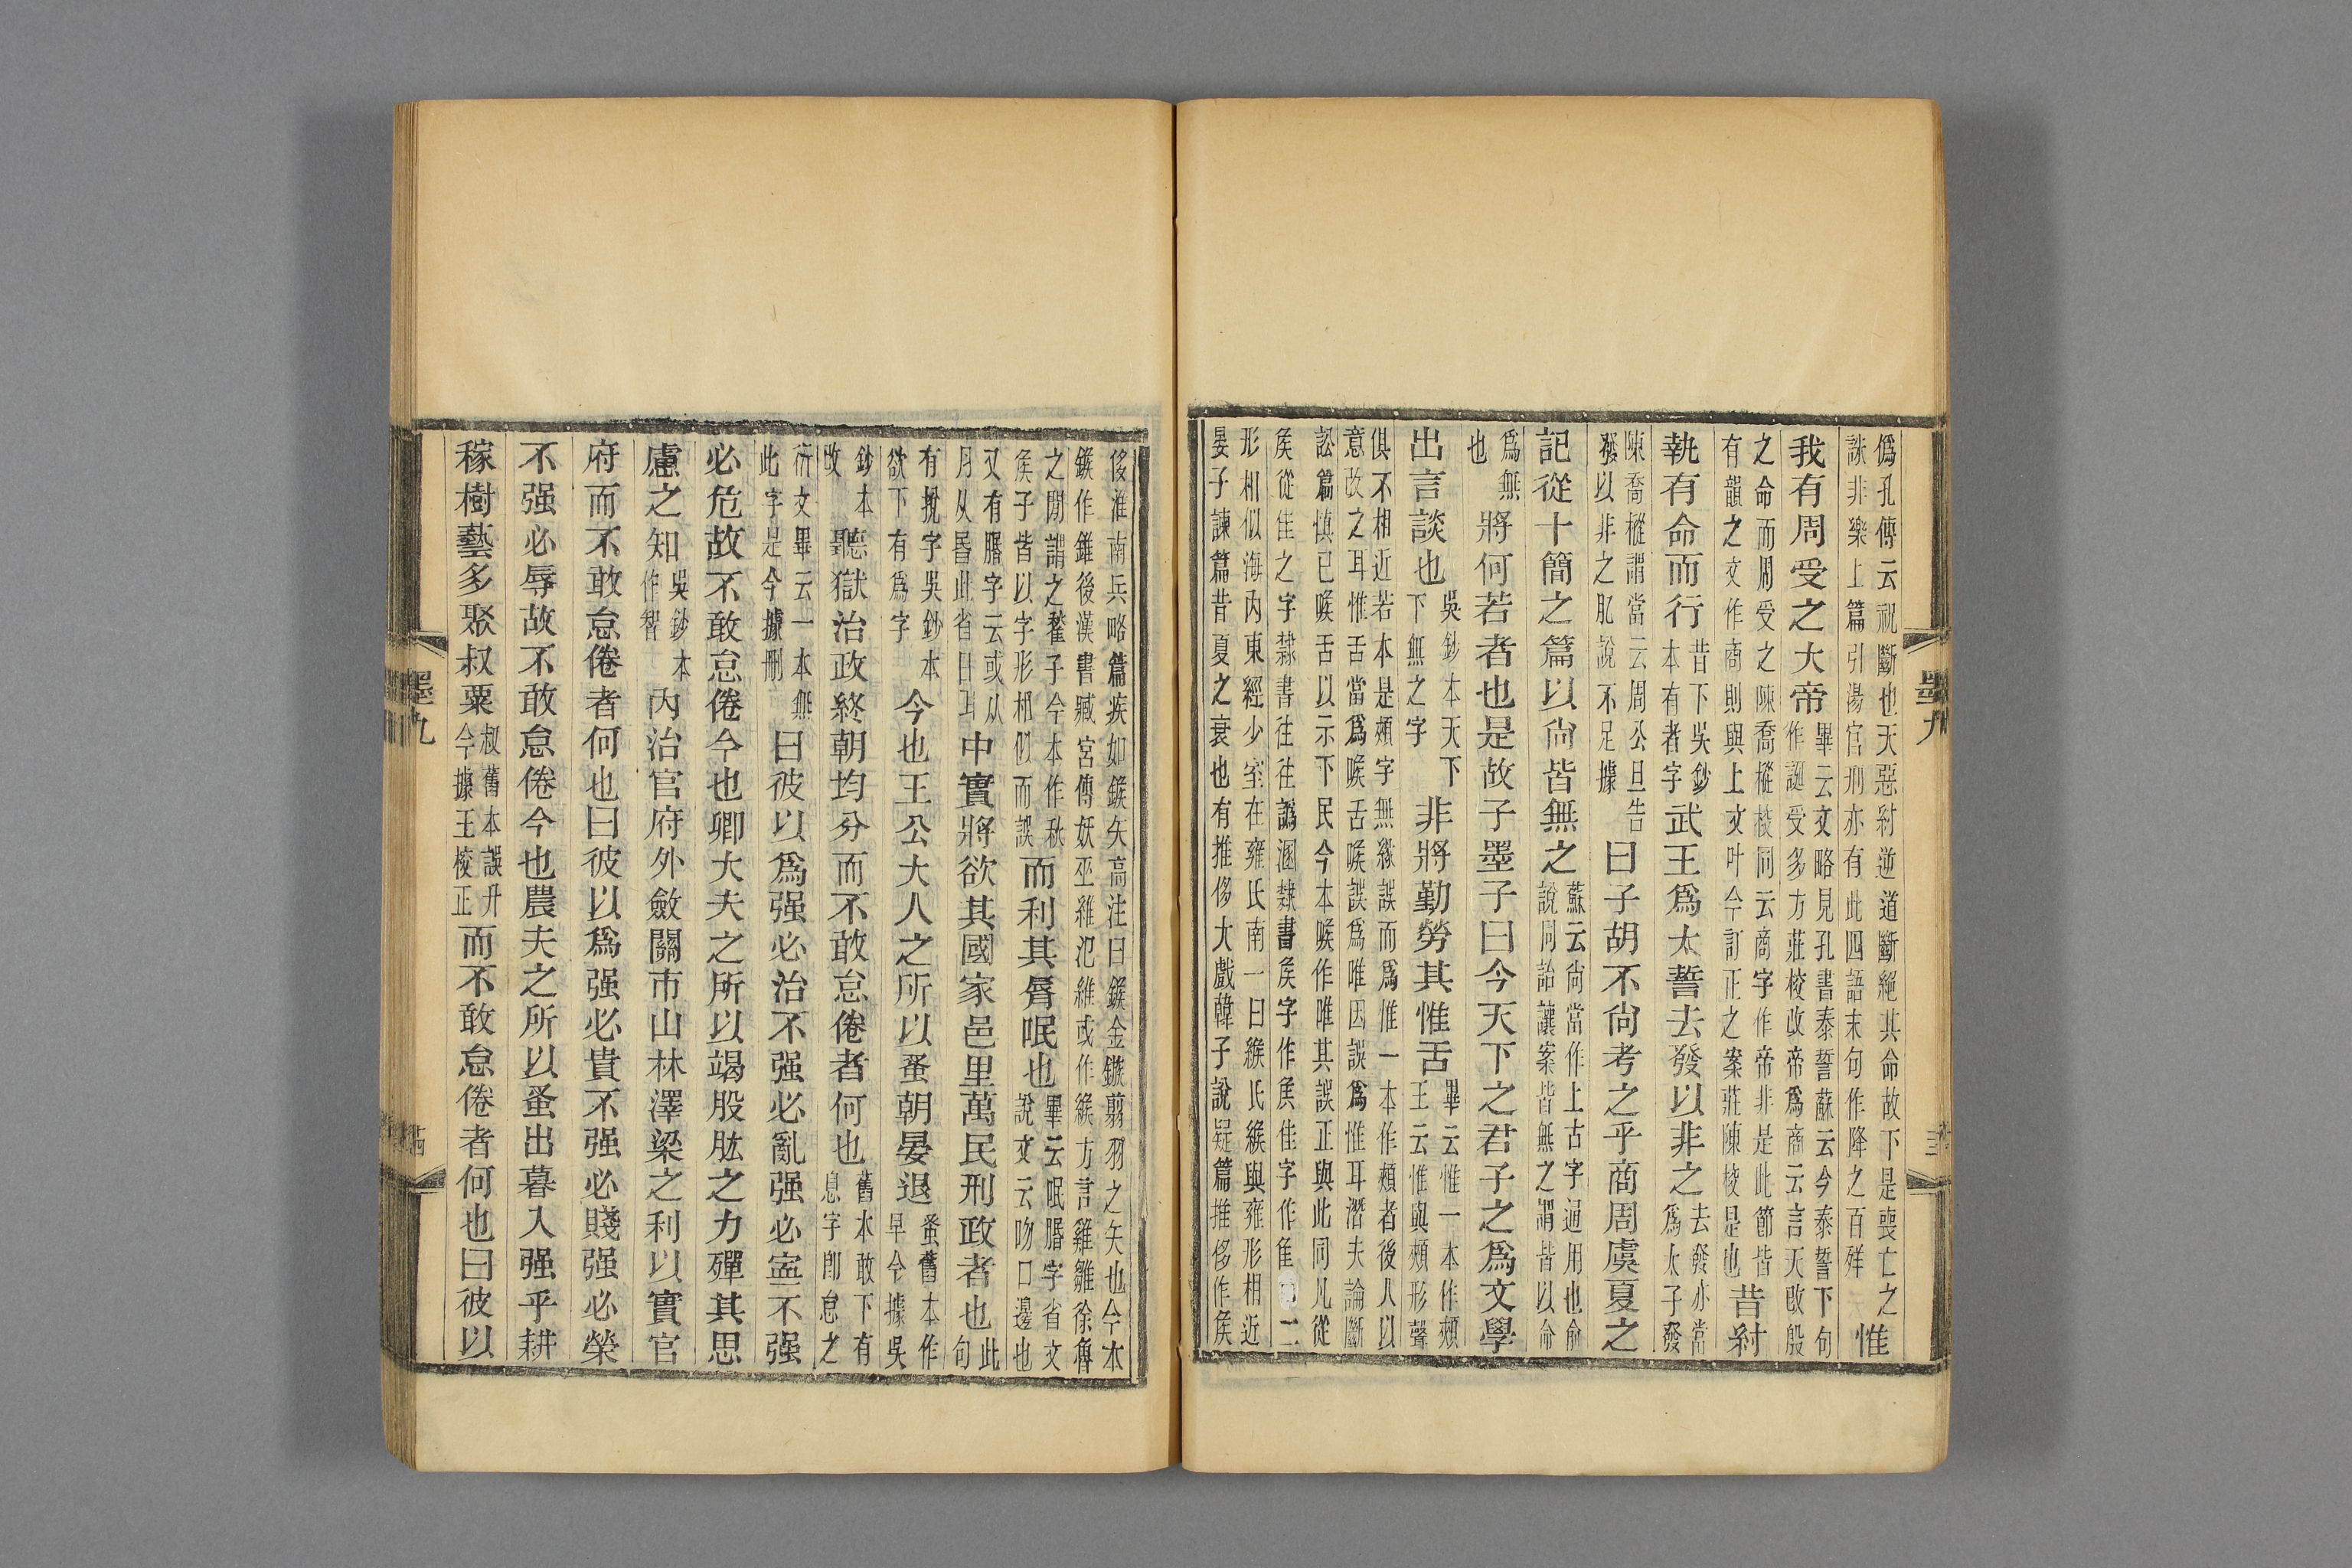 僞孔傳云祝斷也天惡紂逆道斷絕其命故下是喪亡之
誅非樂上篇引湯官刑亦有此四語末句作降之百殃
惟
我有周受之大帝
畢云文略見孔書泰誓蘇云今泰誓下句
作誕受多方莊校改帝爲商云言天改殷
之命而周受之陳喬樅校同云商字作帝非是此節皆
有韻之文作商則與上文叶今訂正之案莊陳校是也
昔紂
執有命而行
昔下吳鈔
本有者字
武王爲太誓去發以非之
去發亦當
爲太子發
陳喬樅謂當云周公旦告
發以非之肊說不足據
曰子胡不尙考之乎商周虞夏之
記從十簡之篇以尙皆無之
蘇云尙當作上古字通用也俞
說同詒讓案皆無之謂皆以命
爲無
也
將何若者也是故子墨子曰今天下之君子之爲文學
出言談也
吳鈔本天下
下無之字
非將勤勞其惟舌
畢云惟一本作頰
王云惟與頰形聲
俱不相近若本是頰字無緣誤而爲惟一本作頰者後人以
意改之耳惟舌當爲喉舌喉誤爲唯因誤爲惟耳潛夫論斷
訟篇愼已喉舌以示下民今本喉作唯其誤正與此同凡從
矦從隹之字隸書往往譌溷隸書矦字作𠋫隹字作隹二
形相似海內東經少室在雍氏南一曰緱氏緱與雍形相近
晏子諫篇昔夏之衰也有推侈大戲韓子說疑篇推侈作矦
侈淮南兵略篇疾如鍭矢高注曰鍭金鏃翦羽之矢也今本
鍭作錐後漢書臧宮傳妖巫維汜維或作緱方言雞雛徐魯
之閒謂之䨂子今本作秋
矦子皆以字形相似而誤
而利其脣呡也
畢云呡㬵字省文
說文云吻口邊也
又有脗字云或从
月从昬此省日耳
中實將欲其國家邑里萬民刑政者也
此
句
有挩字吳鈔本
欲下有爲字
今也王公大人之所以蚤朝晏退
蚤舊本作
早今據吳
鈔本
改
聽獄治政終朝均分而不敢怠倦者何也
舊本敢下有
息字卽怠之
衍文畢云一本無
此字是今據刪
曰彼以爲强必治不强必亂强必寍不强
必危故不敢怠倦今也卿大夫之所以竭股肱之力殫其思
慮之知
吳鈔本
作智
內治官府外斂關市山林澤梁之利以實官
府而不敢怠倦者何也曰彼以爲强必貴不强必賤强必榮
不强必辱故不敢怠倦今也農夫之所以蚤出暮入强乎耕
稼樹藝多聚叔粟
叔舊本誤升
今據王校正
而不敢怠倦者何也曰彼以
墨九
墨九